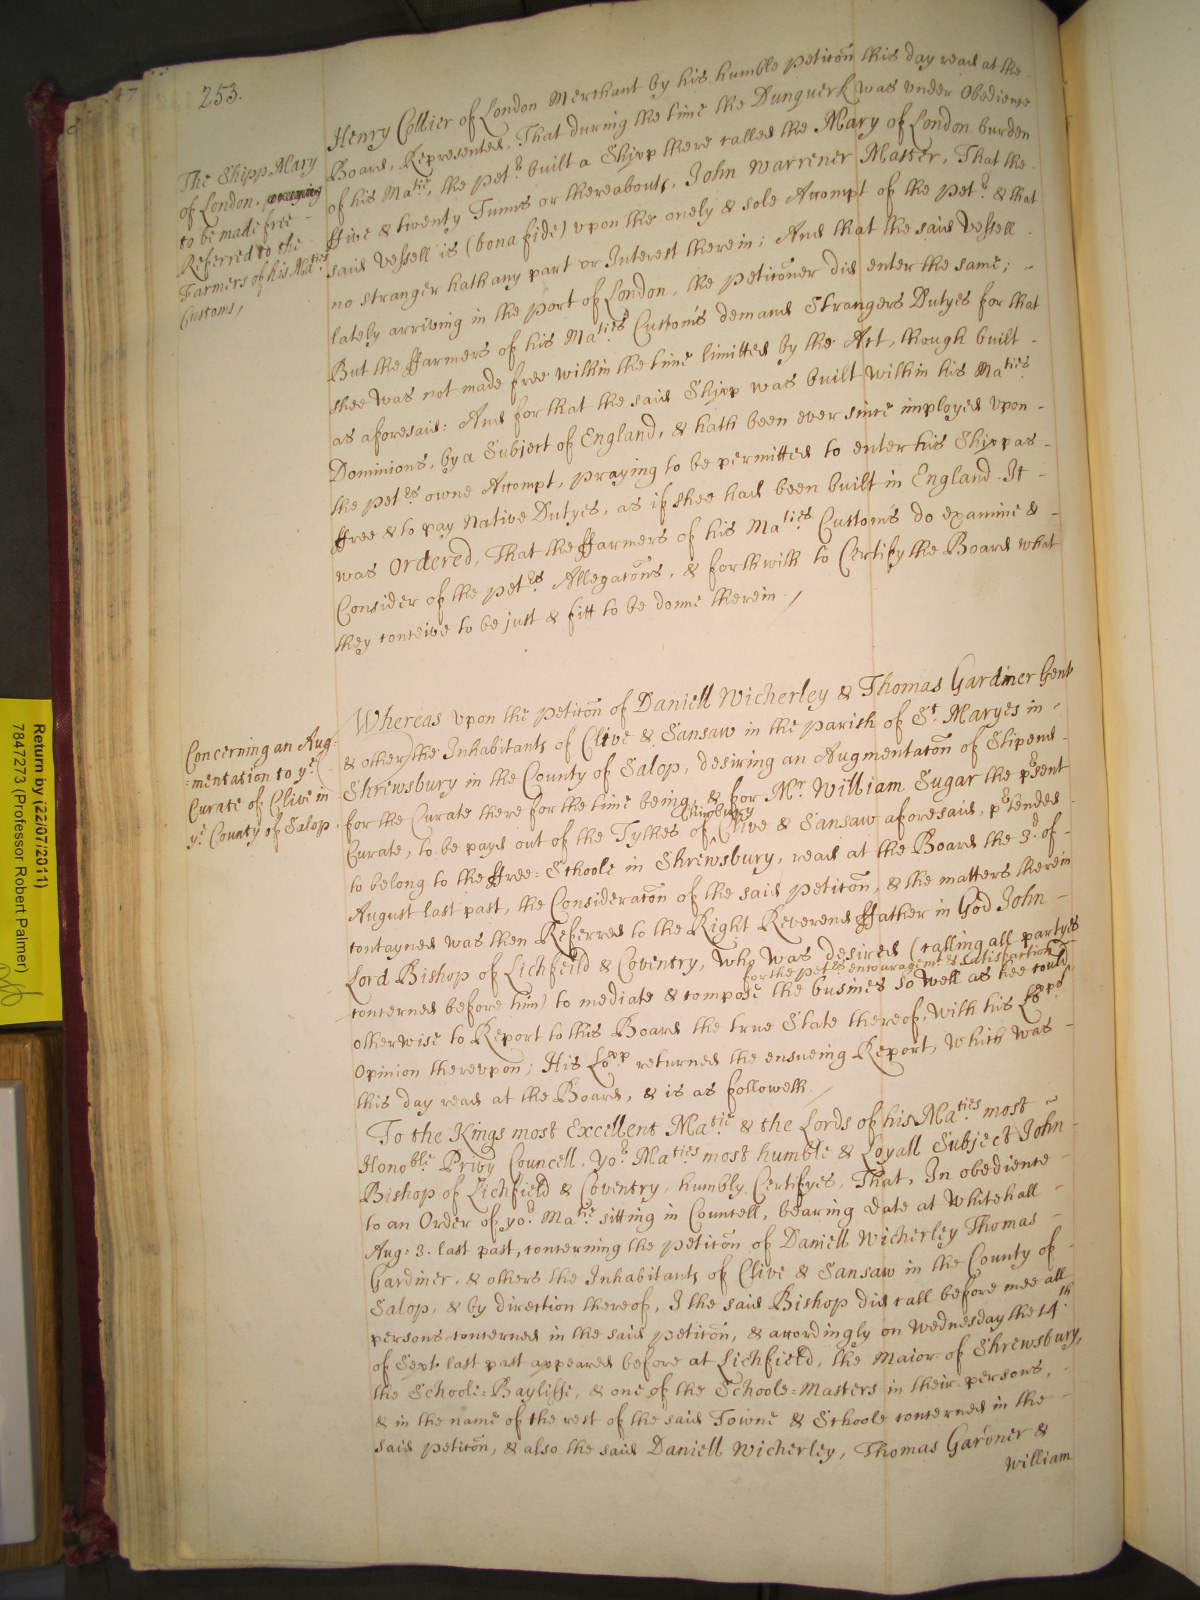 253.
The Shipp Mary
of London. praying
to be made free
Referred to the
Farmers of his Ma.ties
Customs,
Henry Collier of London Merchant by his humble peticõn this day read at the
Board, Represented, That during the time the Dunquerk was under Obedience
of his Ma.tie, the pet.r built a Shipp there called the Mary of London burden
ffive & twenty Tunns or thereabouts, John Warrener Master, That the
said Vessell is (bona fide) vpon the onely & sole Accompt of the pet.r & that
no stranger hath any part or Interest therein; And that the said Vessell
lately arriving in the port of London, the peticõner did enter the same;
But the ffarmers of his Ma.ties Customs demand Strangers Dutyes for that
shee was not made free within the time limitted by the Act, though built
as aforesaid: And for that the said Shipp was built within his Ma.ties
Dominions, by a Subject of England, & hath been ever since imployed vpon
the pet.rs owne Accompt, praying to be permitted to enter his Shipp as
ffree & to pay Native Dutyes, as if shee had been built in England. It
was Ordered, That the ffarmers of his Ma.ties Customs do examine &
Consider of the pet.rs Allegacõns, & forthwith to Certify the Board what
they conceive to be just & fitt to be donne therein.
Concerning an Aug:
:mentation to y.e
Curate of Clive in
y.e County of Salop.
Whereas vpon the peticõn of Daniell Wicherley & Thomas Gardiner Gent
& other the Inhabitants of Clive & Sansaw in the parish of S.t Maryes in
Shrewsbury in the County of Salop, desiring an Augmentacõn of Stipend
for the Curate there for the time being, & for M.r William Sugar the p.rsent
Chirbury
Curate, to be payd out of the Tythes of Clive & Sansaw aforesaid, p.rtended
to belong to the ffree-Schoole in Shrewsbury, read at the Board the 3.d of
August last past, the Consideracõn of the said peticõn, & the matters therein
contayned was then Referred to the Right Reverend ffather in God John
Lord Bishop of Lichfeild & Coventry, who was desired (calling all partyes
for the pet.rs encouragem.t & satisfaction
concerned before him) to mediate & compose the busines so well as hee could
otherwise to Report to this Board the true State thereof, with his Lo.pps
Opinion therevpon; His Lo.pp returned the ensueing Report, which was
this day read at the Board, & is as followeth.
To the Kings most Excellent Ma.tie & the Lords of his Ma.ties most
Hono.ble Privy Councell. Yo.r Ma.ties most humble & Loyall Subject John
Bishop of Lichfield & Coventry, humbly Certifyes, That, In obedience
to an Order of yo.r Ma.tie sitting in Councell, bearing date at Whitehall
Aug: 3. last past, concerning the peticõn of Daniell Wicherley Thomas
Gardiner, & others the Inhabitants of Clive & Sansaw in the County of
Salop, & by direction thereof, I the said Bishop did call before mee all
persons concerned in the said peticõn, & accordingly on Wednesday the 14.th
of Sept. last past appeared before at Lichfield, the Maior of Shrewsbury,
the Schoole-Bayliffe, & one of the Schoole-Masters in their persons,
& in the name of the rest of the said Towne & Schoole concerned in the
said peticõn, & also the said Daniell Wicherley, Thomas Gardner &
William
Return by (22/07/2011)
7847273 (Professor Robert Palmer)